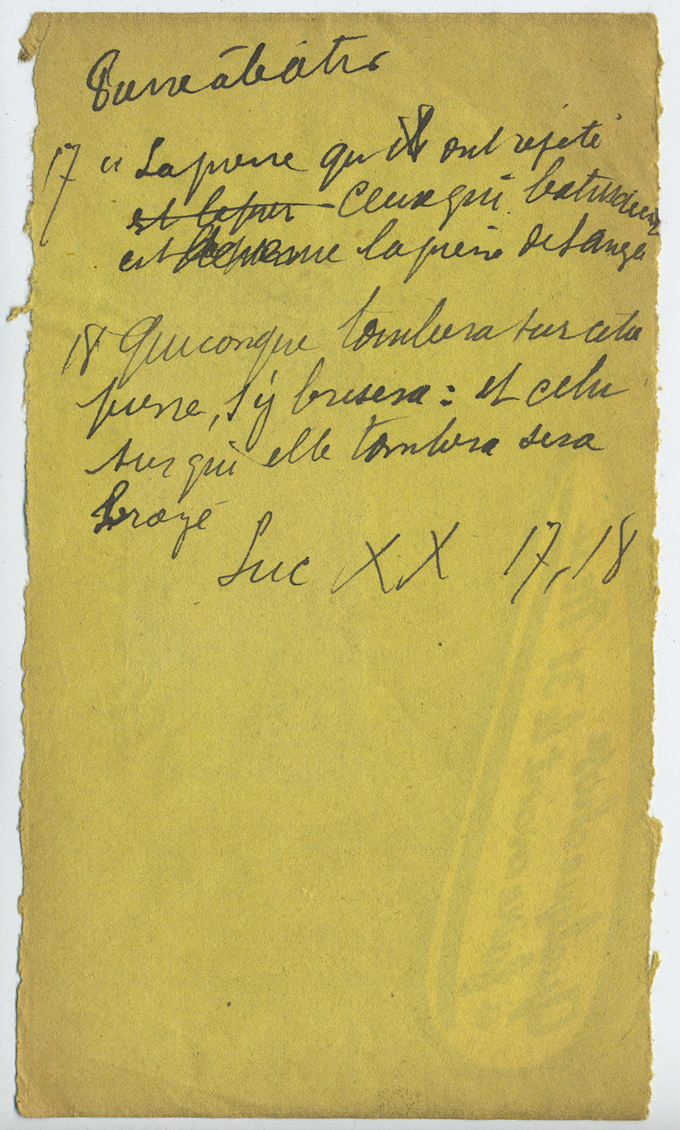 Pierre à bâtir
17 " La pierre qu'ils ont rejeté
est le pier - Ceux qui batissaient
est devenue la pierre de l'angle
18 Quiconque tombera sur cette
pierre, s'y brisera : et celui
sur qui elle tombera sera
broyé
Luc XX 17, 18